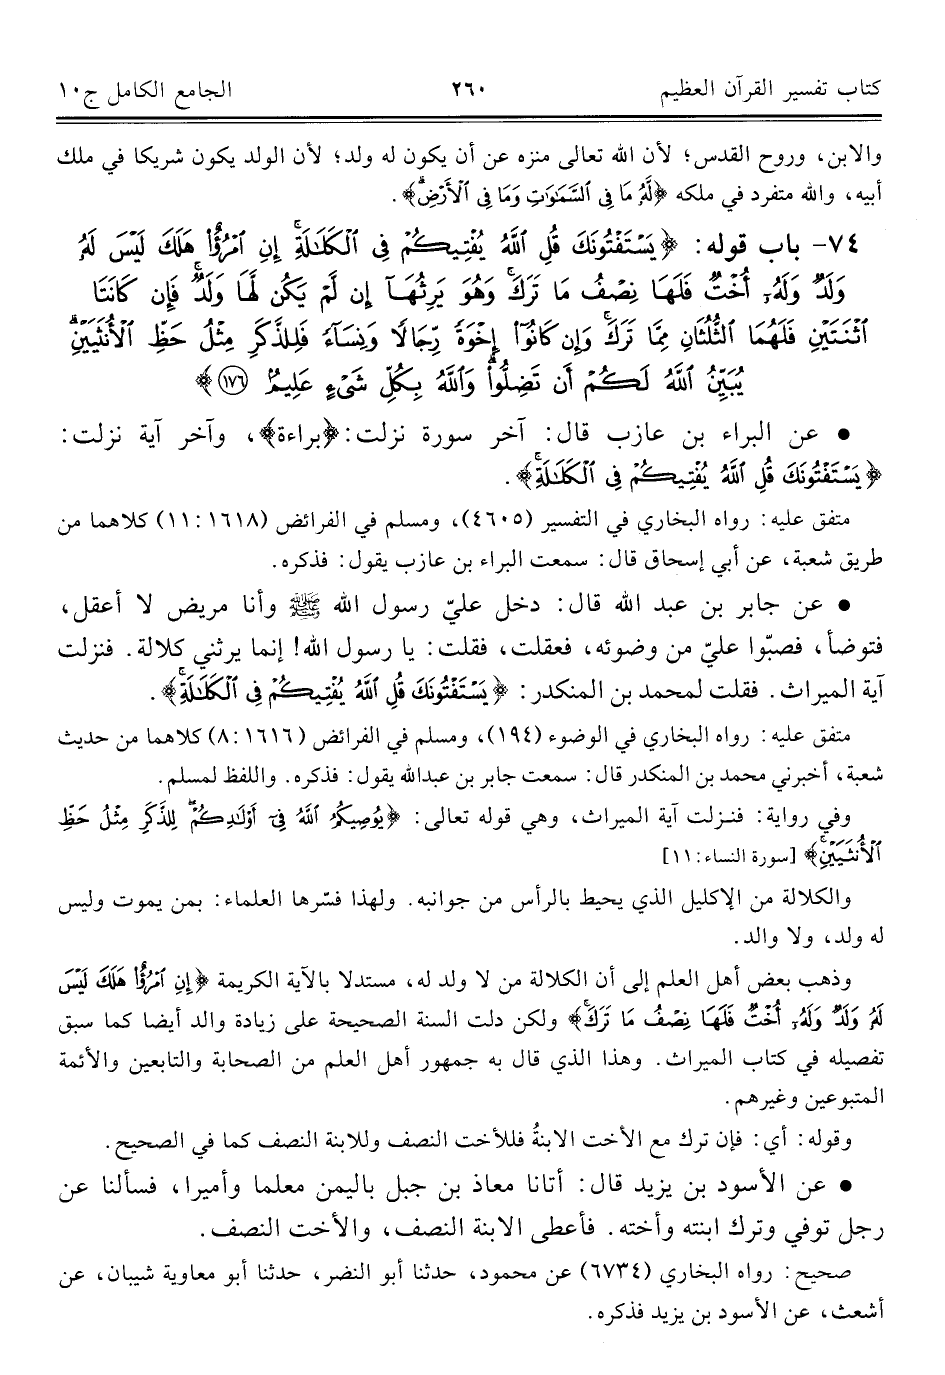 كتاب تفسير القرآن العظيم ٢٦٠ الجامع الكامل ج١٠
والابن، وروح القدس؛ لأن الله تعالى منزه عن أن يكون له ولد؛ لأن الولد يكون شريكا في ملك
أبيه، والله متفرد في ملكه ﴿لَّهُۥ مَا فِي ٱلسَّمَٰوَٰتِ وَمَا فِي ٱلۡأَرۡضِۗ﴾.
٧٤- باب قوله: ﴿يَسۡتَفۡتُونَكَ قُلِ ٱللَّهُ يُفۡتِيكُمۡ فِي ٱلۡكَلَٰلَةِۚ إِنِ ٱمۡرُؤٌاْ هَلَكَ لَيۡسَ لَهُۥ
وَلَدٞ وَلَهُۥٓ أُخۡتٞ فَلَهَا نِصۡفُ مَا تَرَكَۚ وَهُوَ يَرِثُهَآ إِن لَّمۡ يَكُن لَّهَا وَلَدٞۚ فَإِن كَانَتَا
ٱثۡنَتَيۡنِ فَلَهُمَا ٱلثُّلُثَانِ مِمَّا تَرَكَۚ وَإِن كَانُوٓاْ إِخۡوَةٗ رِّجَالٗا وَنِسَآءٗ فَلِلذَّكَرِ مِثۡلُ حَظِّ ٱلۡأُنثَيَيۡنِۗ
يُبَيِّنُ ٱللَّهُ لَكُمۡ أَن تَضِلُّواْۗ وَٱللَّهُ بِكُلِّ شَيۡءٍ عَلِيمُۢ ١٧٦﴾
• عن البراء بن عازب قال: آخر سورة نزلت: ﴿براءة﴾، وآخر آية نزلت:
﴿يَسۡتَفۡتُونَكَ قُلِ ٱللَّهُ يُفۡتِيكُمۡ فِي ٱلۡكَلَٰلَةِۚ﴾.
متفق عليه: رواه البخاري في التفسير (٤٦٠٥)، ومسلم في الفرائض (١٦١٨: ١١) كلاهما من
طريق شعبة، عن أبي إسحاق قال: سمعت البراء بن عازب يقول: فذكره.
• عن جابر بن عبد الله قال: دخل عليّ رسول الله ﷺ وأنا مريض لا أعقل،
فتوضأ، فصبّوا عليّ من وضوئه، فعقلت، فقلت: يا رسول الله! إنما يرثني كلالة. فنزلت
آية الميراث. فقلت لمحمد بن المنكدر: ﴿يَسۡتَفۡتُونَكَ قُلِ ٱللَّهُ يُفۡتِيكُمۡ فِي ٱلۡكَلَٰلَةِۚ﴾.
متفق عليه: رواه البخاري في الوضوء (١٩٤)، ومسلم في الفرائض (١٦١٦: ٨) كلاهما من حديث
شعبة، أخبرني محمد بن المنكدر قال: سمعت جابر بن عبدالله يقول: فذكره. واللفظ لمسلم.
وفي رواية: فنزلت آية الميراث، وهي قوله تعالى: ﴿يُوصِيكُمُ ٱللَّهُ فِيٓ أَوۡلَٰدِكُمۡۖ لِلذَّكَرِ مِثۡلُ حَظِّ
ٱلۡأُنثَيَيۡنِۚ﴾ [سورة النساء: ١١]
والكلالة من الإكليل الذي يحيط بالرأس من جوانبه. ولهذا فسّرها العلماء: بمن يموت وليس
له ولد، ولا والد.
وذهب بعض أهل العلم إلى أن الكلالة من لا ولد له، مستدلا بالآية الكريمة ﴿إِنِ ٱمۡرُؤٌاْ هَلَكَ لَيۡسَ
لَهُۥ وَلَدٞ وَلَهُۥٓ أُخۡتٞ فَلَهَا نِصۡفُ مَا تَرَكَۚ﴾ ولكن دلت السنة الصحيحة على زيادة والد أيضا كما سبق
تفصيله في كتاب الميراث. وهذا الذي قال به جمهور أهل العلم من الصحابة والتابعين والأئمة
المتبوعين وغيرهم.
وقوله: أي: فإن ترك مع الأخت الابنةُ فللأخت النصف وللابنة النصف كما في الصحيح.
• عن الأسود بن يزيد قال: أتانا معاذ بن جبل باليمن معلما وأميرا، فسألنا عن
رجل توفي وترك ابنته وأخته. فأعطى الابنة النصف، والأخت النصف.
صحيح: رواه البخاري (٦٧٣٤) عن محمود، حدثنا أبو النضر، حدثنا أبو معاوية شيبان، عن
أشعث، عن الأسود بن يزيد فذكره.